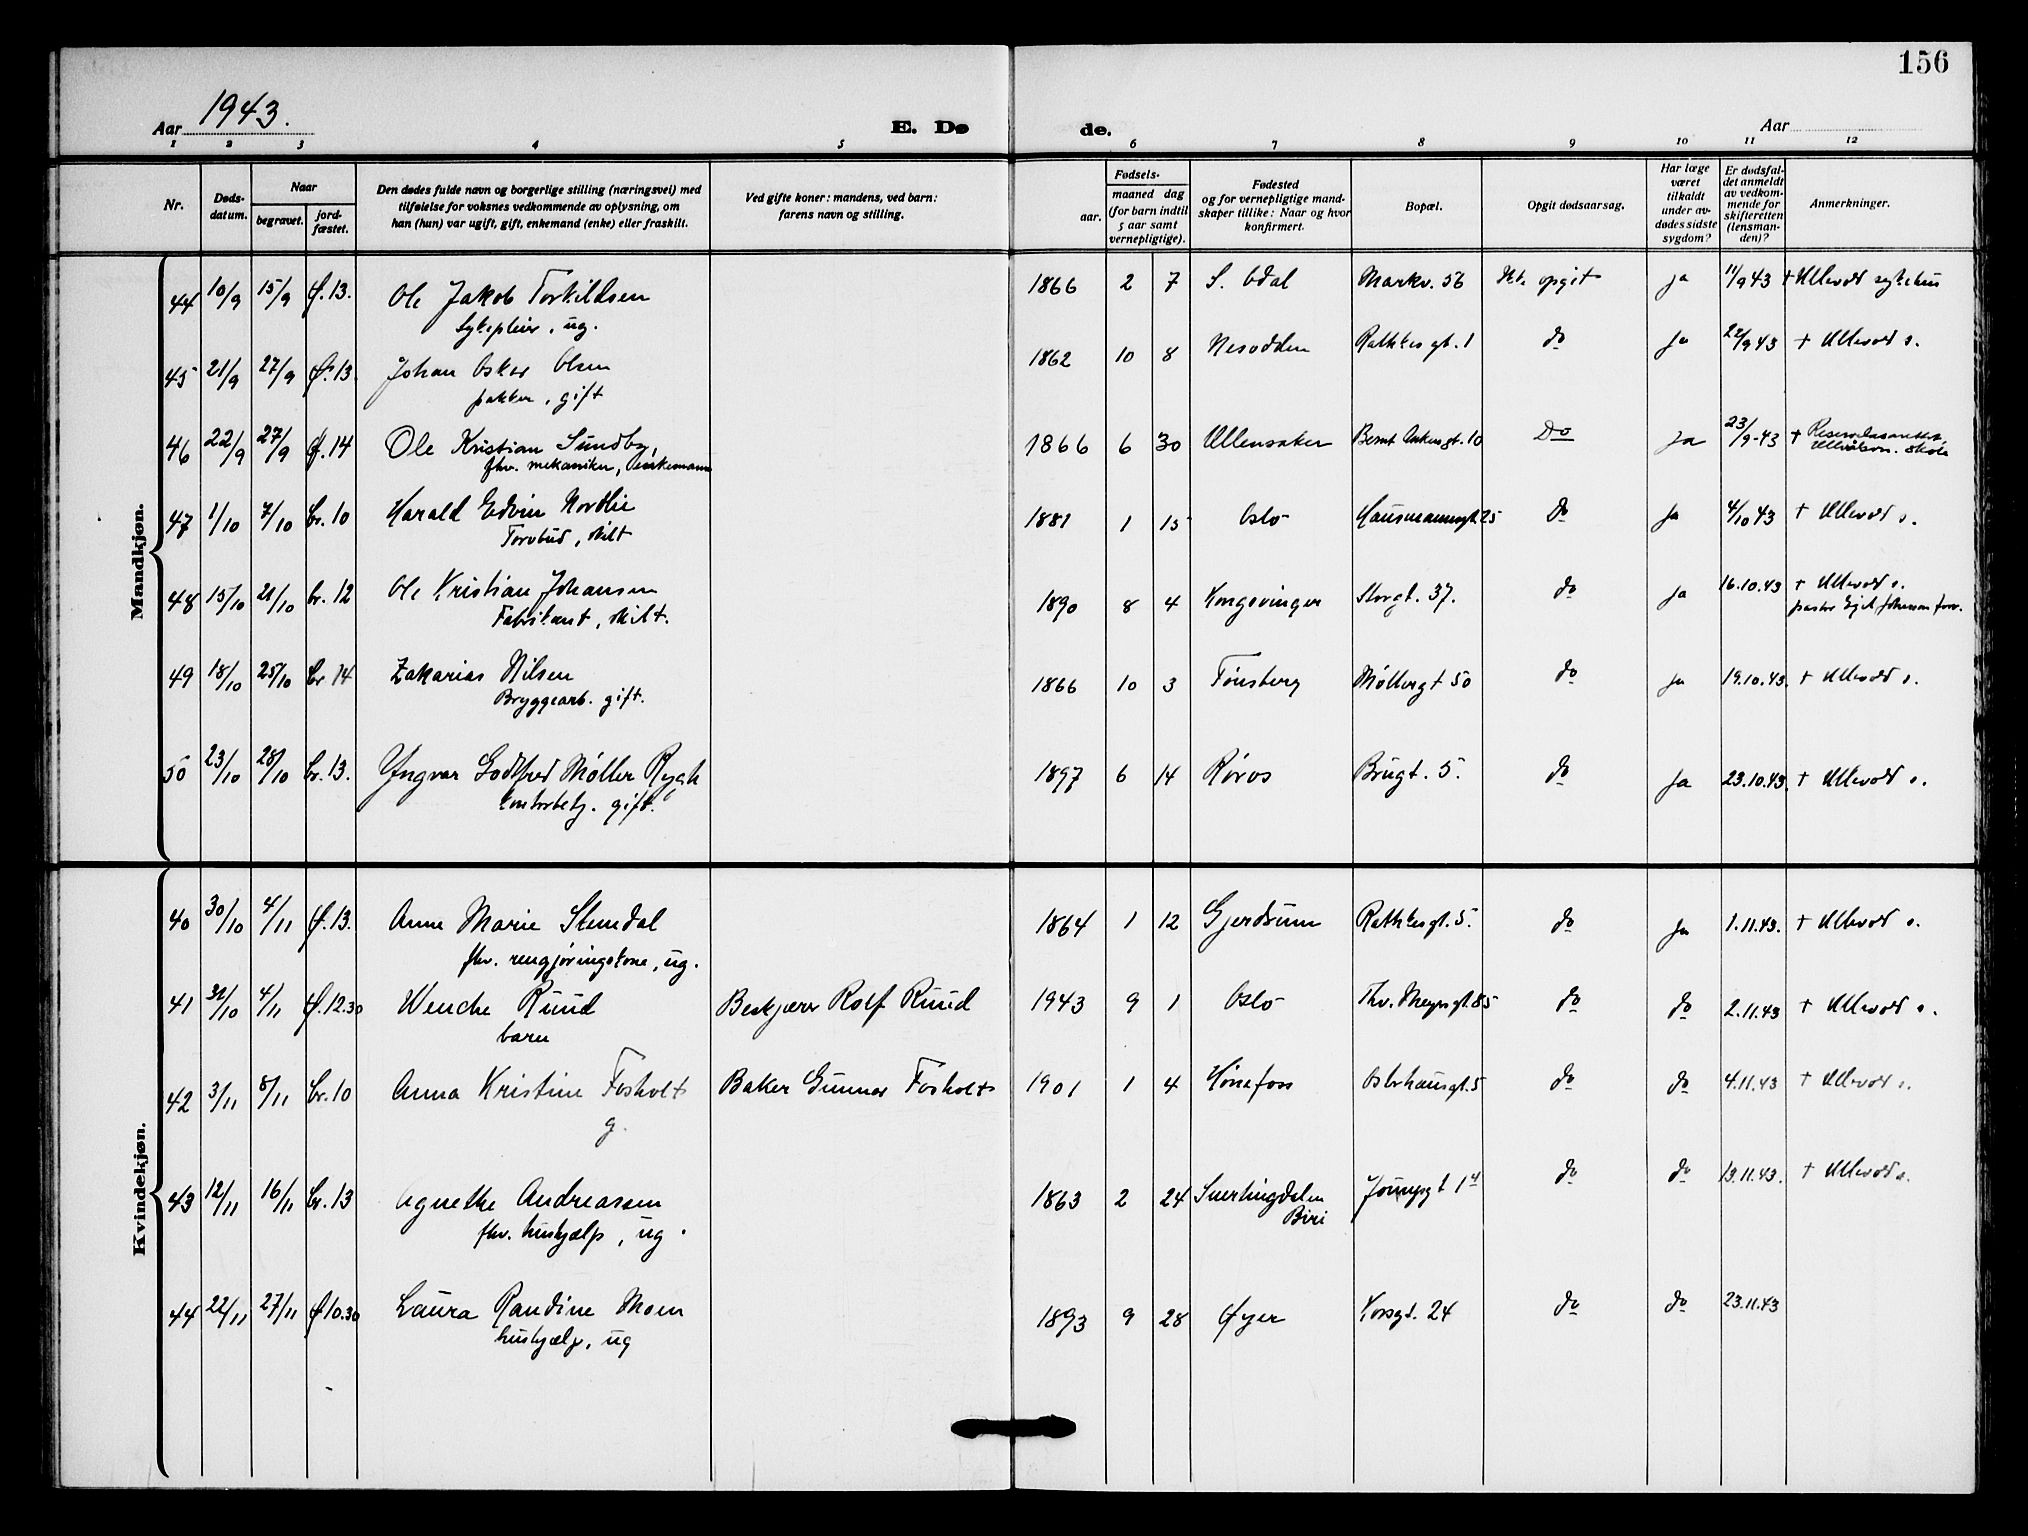 156
Aar 1943.
E. Døde.
Aar
1 2 3 4 5 6 7 8 9 10 11 12
Nr.
Døds-
datum.
Naar
begravet.
jord-
fæstet.
Den dødes fulde navn og borgerlige stilling (næringsvei) med
tilføielse for voksnes vedkommende av oplysning, om
han (hun) var ugift, gift, enkemand (enke) eller fraskilt.
Ved gifte koner: mandens, ved barn:
farens navn og stilling.
Fødsels-
aar.
maaned dag
(for barn indtil
5 aar samt
vernepligtige).
Fødested
og for vernepligtige mand-
skaper tillike: Naar og hvor
konfirmert.
Bopæl.
Opgit dødsaarsag.
Har læge
været
tilkaldt
under av-
dødes sidste
sygdom?
Er dødsfal-
det anmeldt
av vedkom-
mende for
skifteretten
(lensman-
den)?
Anmerkninger.
Mandkjøn.
44 10/9 15/9 φ. 13. Ole Jakob Torkildsen 1866 2 7 S. Odal Markv. 56 Ikke opgit ja 11/9 43 + Ullevål sykehus
Sykepleier, ug.
45 21/9 27/9 φ. 13. Johan Oskar Olsen 1862 10 8 Nesodden Rathkes gt. 1 do ja 22/9 43 + Ullevål s.
pakker, gift
46 22/9 27/9 φ. 14 Ole Kristian Sundby, 1866 6 30 Ullensaker Bernt Ankersgt. 10 Do ja 23/9-43 +
fhv. mekaniker, enkemann
47 1/10 7/10 br. 10 Harald Edvin Nordlie 1881 1 15 Oslo Hausmannsgt. 25 do ja 4/10 43 + Ullevål s.
Torvbud, skilt
48 15/10 21/10 br. 12 Ole Kristian Johansen 1890 8 4 Kongsvinger Storgt. 37. do ja 16.10.43 + Ullevål s.
Fabrikant, skilt. pastor Egil Johansen forr.
49 18/10 25/10 br 14 Zakarias Nilsen 1866 10 3 Tønsberg Møllergt 50 do ja 19.10.43. + Ullevål s.
Bryggearb. gift.
50 23/10 28/10 br. 13. Yngvar Godtfred Møller Rygh 1897 6 14 Røros Brugt. 5. do ja 23.10.43. + Ullevål s.
kontorbetj. gift.
Kvindekjøn.
40 30/10 4/11 φ. 13. Anne Marie Stendal 1864 1 12 Gjerdrum Rathkesgt. 5. do ja 1.11.43. + Ullevål s.
fhv. rengjøringskone, ug.
41 31/10 4/11 φ. 12.30 Wenche Ruud Beskjærer Rolf Ruud 1943 9 1 Oslo Thv. Meyersgt. 85 do do 2.11.43 + Ullevål s.
barn
42 3/11 8/11 br. 10 Anna Kristine Fosholt Baker Gunnar Fosholt 1901 1 4 Hønefoss Oslohausgt. 5 do do 4.11.43 + Ullevål s.
g.
43 12/11 16/11 br. 13 Agnethe Andreassen 1863 2 24 Snertingdalen Youngsgt 14 do do 13.11.43. + Ullevål s.
fhv. hushjælp, ug. Biri
44 22/11 27/11 φ 10.30 Laura Randine Moen 1893 9 28 Øyer Korsgt. 24 do do 23.11.43
hushjælp, ug